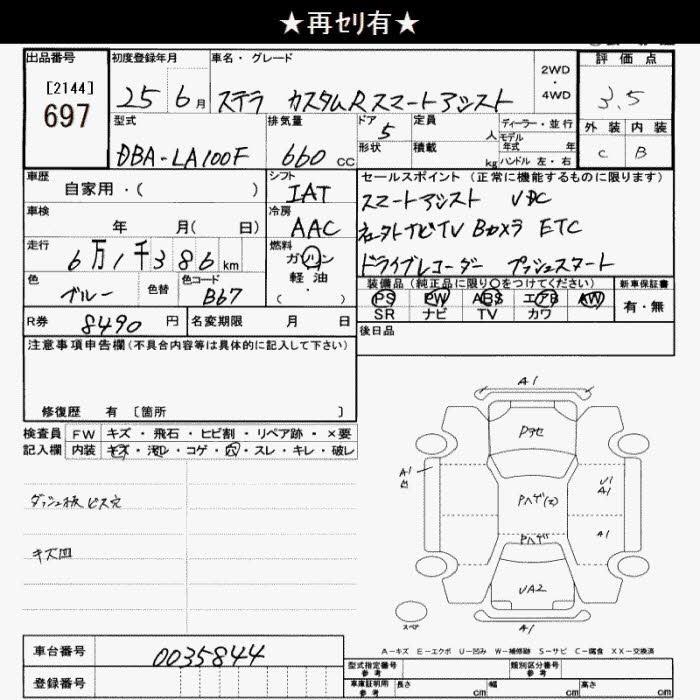 ★再ｾﾘ有★
出品番号 初度登録年月 車名・グレード 評価点
[2144] 2WD
697 25 6月 ステラ カスタムR スマートアシスト ・ 4WD 3.5
型式 排気量 ドア 定員 ディーラー・並行 外装 内装
DBA-LA100F 660 CC 5 人 モデル年式 年 C B
形状 積載 kg ハンドル 左・右
車歴 シフト セールスポイント（正常に機能するものに限ります）
自家用・（ ） IAT スマートアシスト VDC
車検 冷房
年 月（ 日） AAC ナビTV Bカメラ ETC
走行 燃料
6万1千386km ガソリン ドライブレコーダー プッシュスタート
色 色替 色コード 軽油・ 装備品（純正品に限り○をつけてください） 新車保証書
ブルー B67 （ ） PS PW ABS エアB AW 有・無
R券 8490円 名変期限 月 日 SR ナビ TV カワ
注意事項申告欄（不具合内容等は具体的に記入して下さい） 後日品
修復歴 有 〔箇所 〕
検査員 FW キズ・飛石・ヒビ割・リペア跡・×要
記入欄 内装 キズ・汚レ・コゲ・穴・スレ・キレ・破レ
A1
Pｱｾ
A1 凹
Pﾊｹﾞ(ｴ) U1 A1
ダッシュ板 ビス穴
Pﾊｹﾞ A1
キズ凹
UA2
スペア A1
A－キズ E－エクボ U－凹み W－補修跡 S－サビ C－腐食 XX－交換済
車台番号 0035844
型式指定番号 参考 類別区分番号 参考
登録番号 車庫証明用 参考 長さ cm 幅 cm 高さ cm